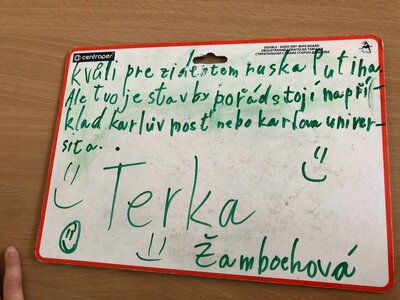 centropen
DOUBLE-SIDED DRY-WIPE BOARD
kvůli prezidentem ruska Putina
Ale tvoje stavby pořád stojí napří-
klad karlův most nebo karlova univer-
sita..
Terka
Žambochová